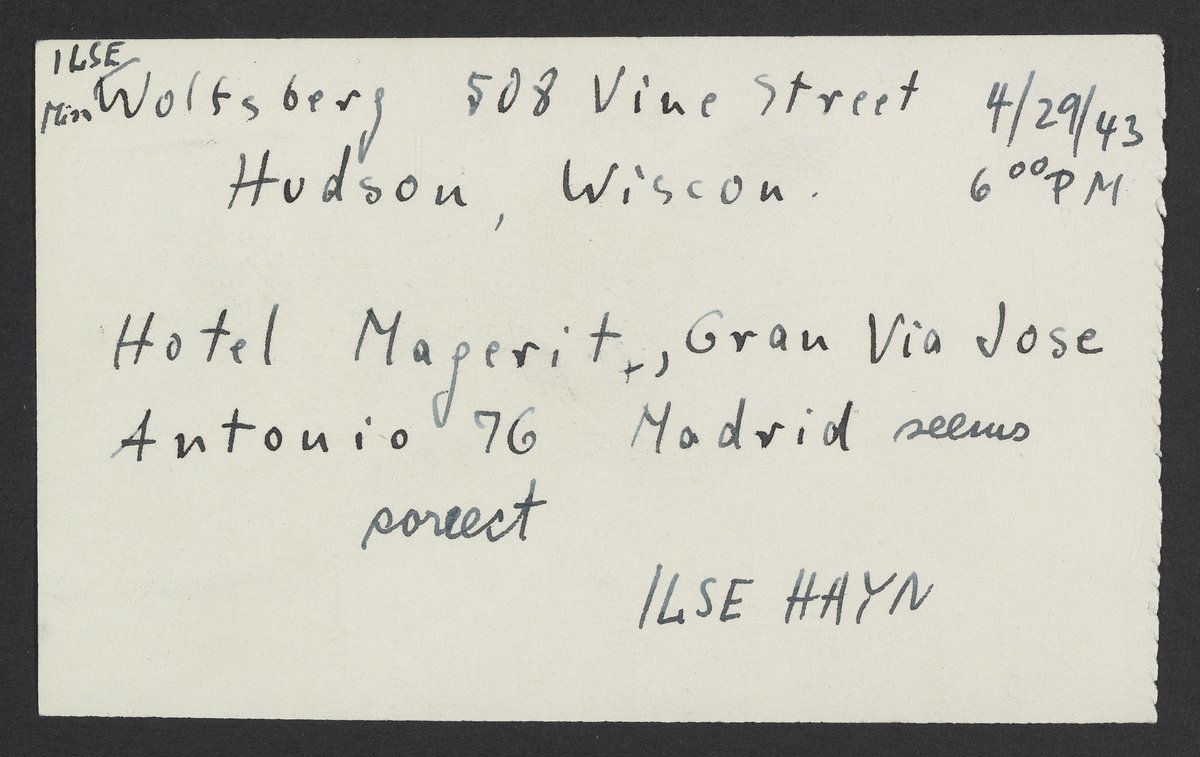 ILSE
Miss Wolfsberg 508 Vine Street 4/29/43
Hudson, Wiscon. 6 00 PM
Hotel Magerit, Gran Via Jose
Antonio 76 Madrid seems
correct
ILSE HAYN